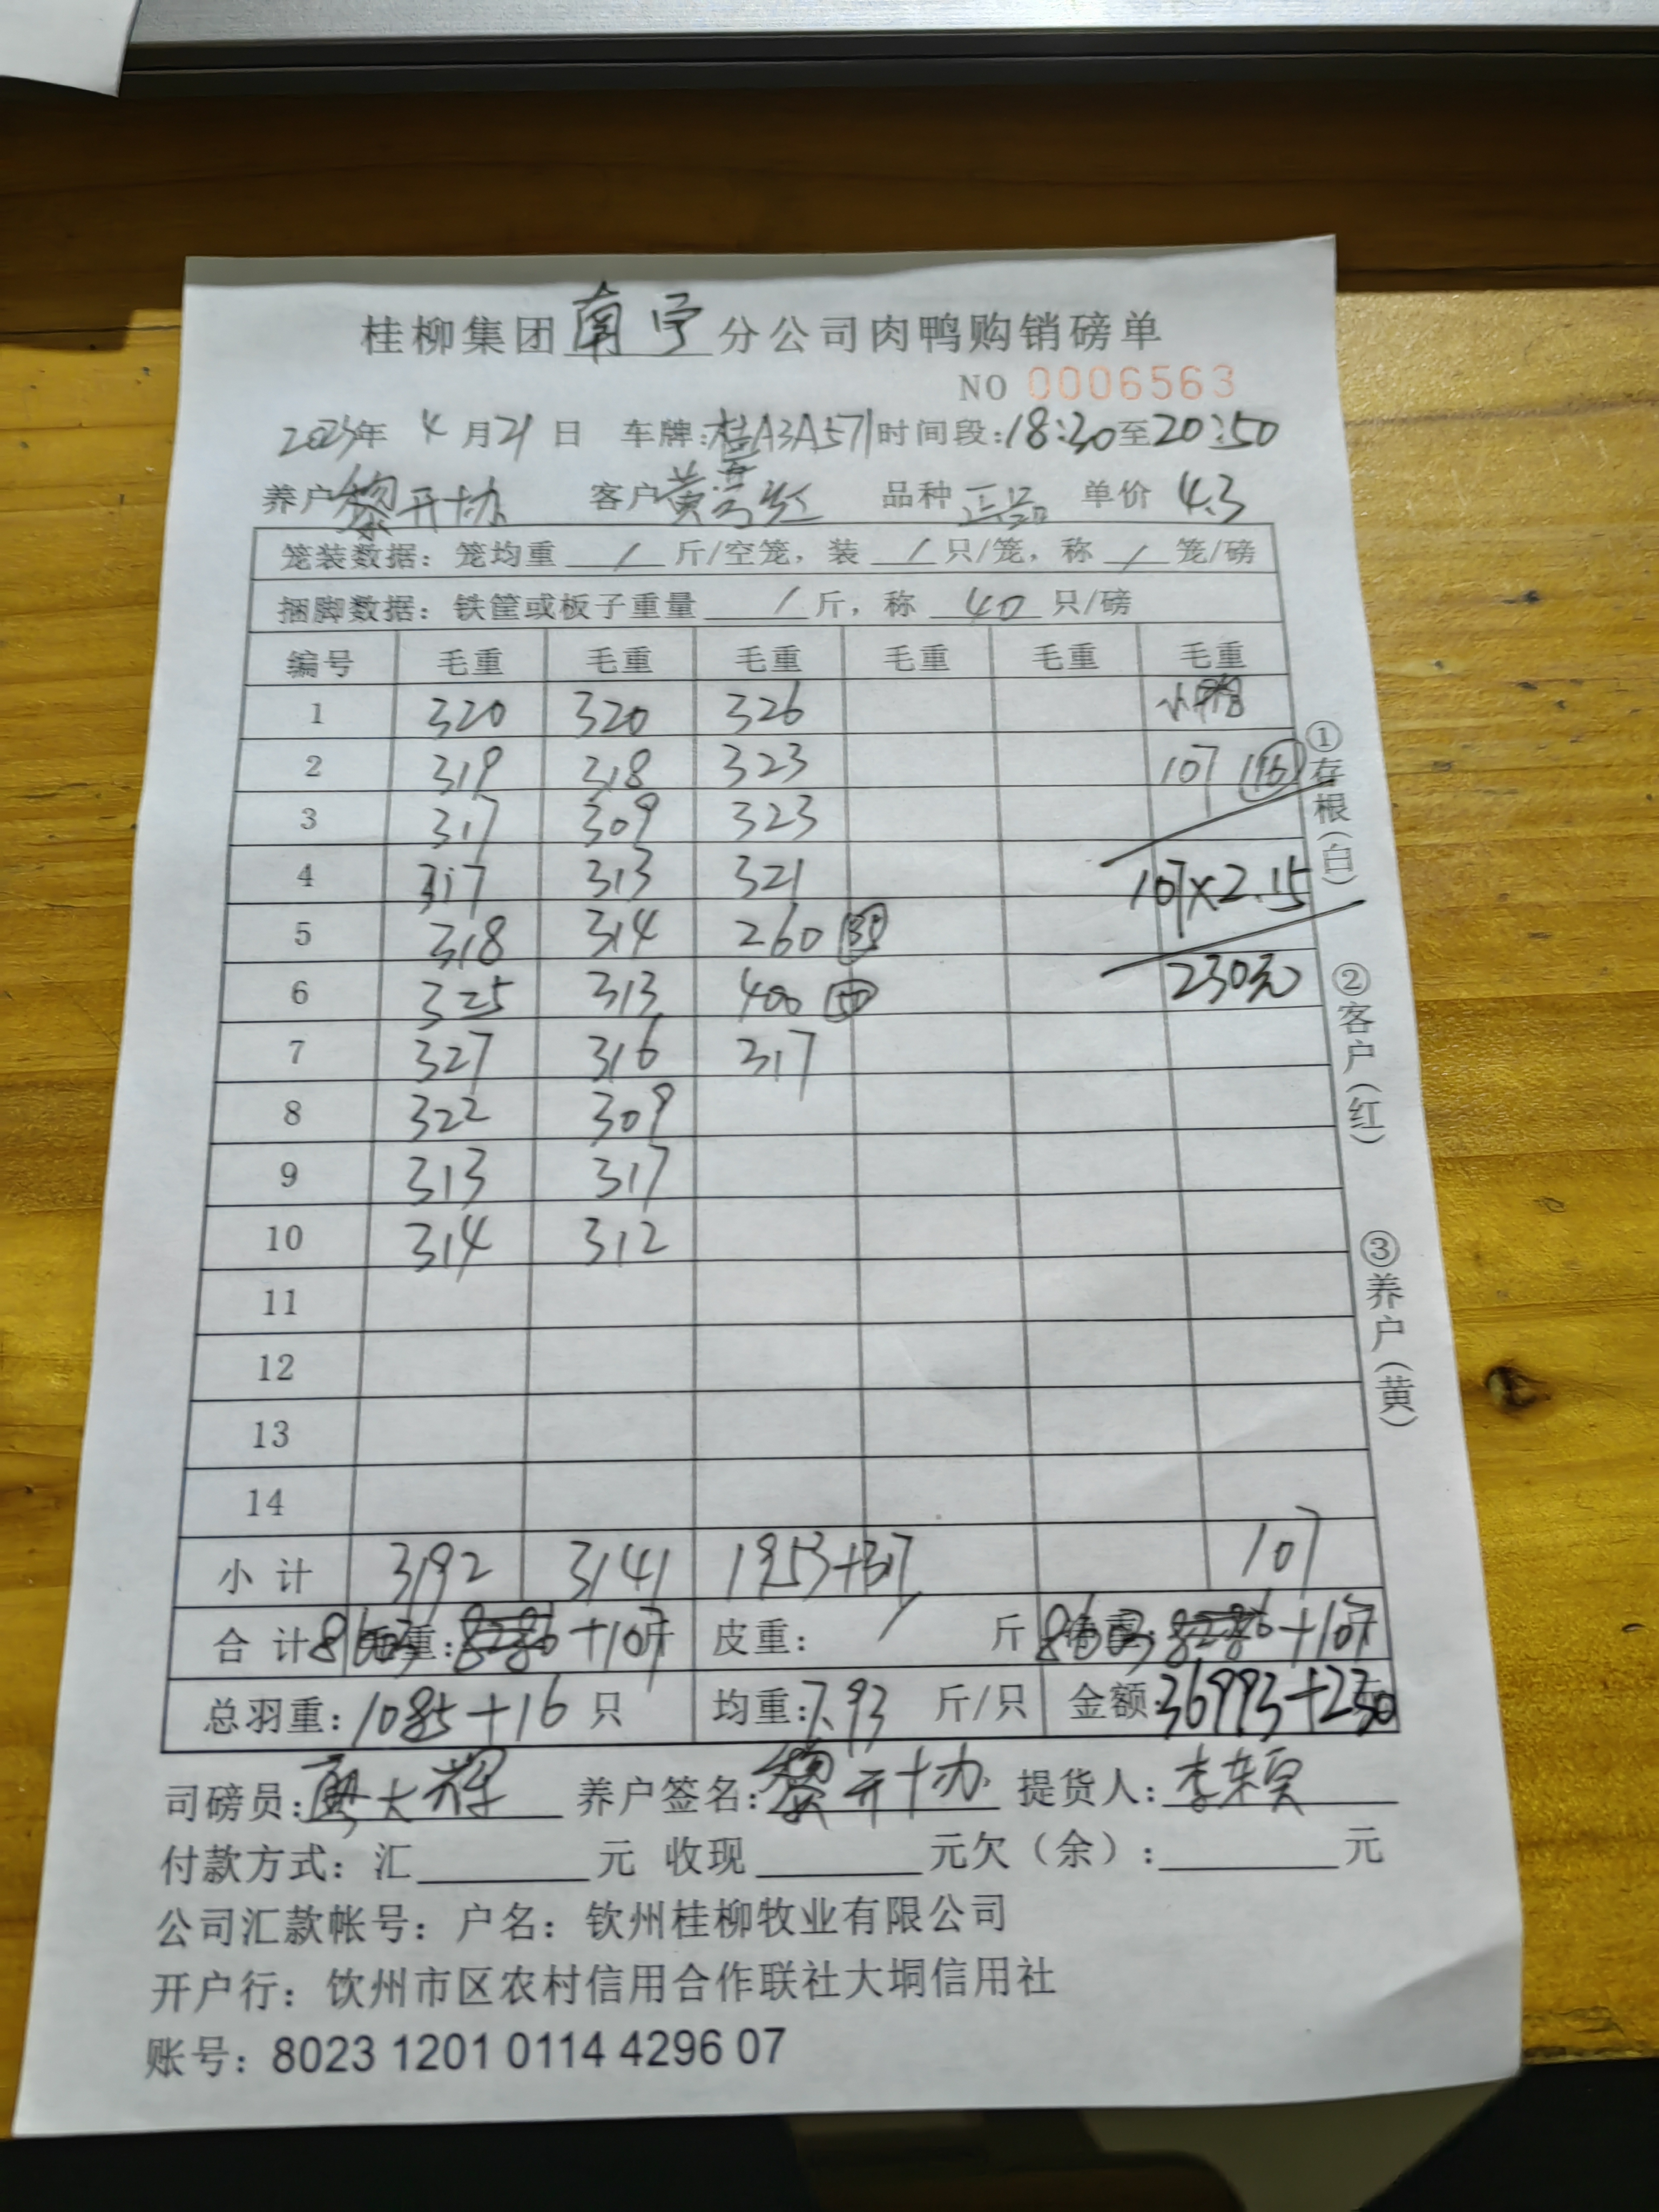 桂柳集团南宁分公司肉鸭购销磅单
NO 0006563
年 4月21日 车牌:桂A3A571时间段:18:30至20:50
养户黎开协 客户黄 红 品种 正品 单价 4.3
笼装数据：笼均重 / 斤/空笼，装 / 只/笼，称 / 笼/磅
捆脚数据：铁筐或板子重量 / 斤，称 40 只/磅
编号 毛重 毛重 毛重 毛重 毛重 毛重
1 320 320 326
2 319 318 323 107 16
3 317 309 323
4 317 313 321 107×2.15
5 318 314 260
6 325 313 400 230元
7 327 316 317
8 322 309
9 313 317
10 314 312
11
12
13
14
小计 3192 3141 1953+317 107
合计 毛重: 8603 8286+107斤 皮重: / 斤 净重: 8603 8286+107
总羽重: 1085+16 只 均重: 7.93 斤/只 金额: 36993+230
司磅员: 大辉 养户签名: 黎开协 提货人: 李荣
付款方式: 汇 元 收现 元欠（余）: 元
公司汇款帐号：户名：钦州桂柳牧业有限公司
开户行：饮州市区农村信用合作联社大垌信用社
账号：8023 1201 0114 4296 07
①存根(白)
②客户(红)
③养户(黄)